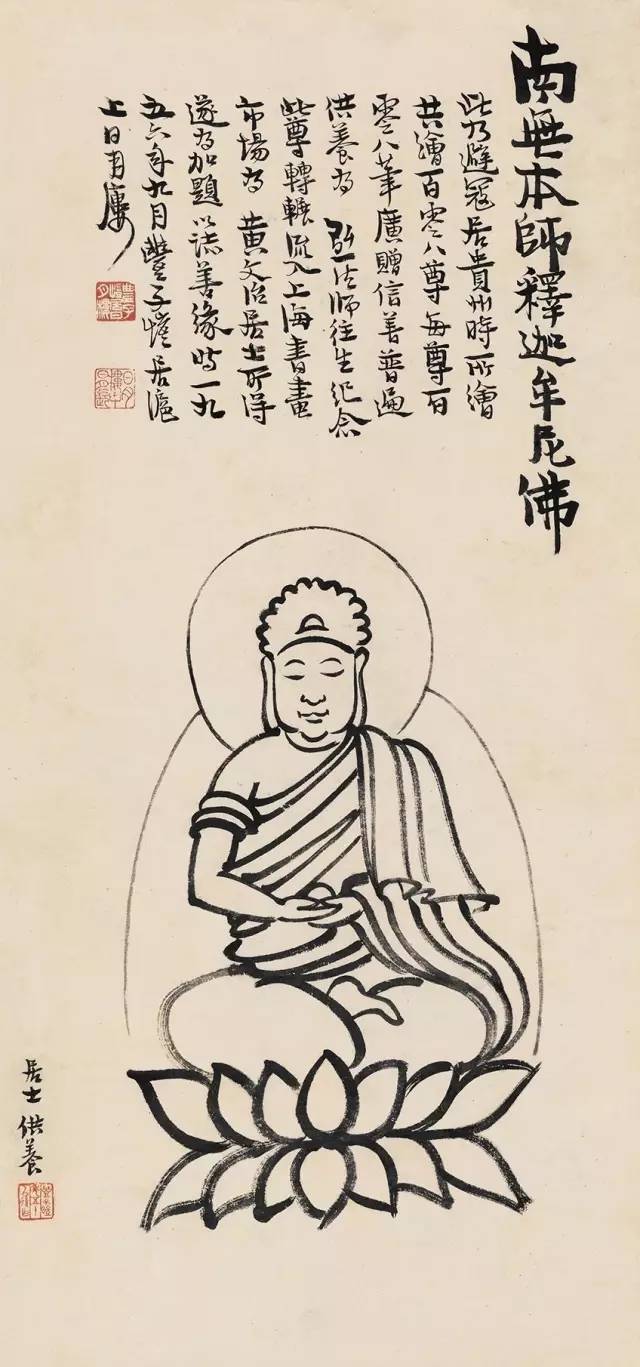 南無本師釋迦牟尼佛
此乃避寇居貴州時所繪
共繪百零八尊每尊百
零八筆廣贈信善普遍
供養為弘一法師往生紀念
此尊轉輾流入上海書畫
市場為黃文治居士所得
遂為加題以誌善緣時一九
五六年九月豐子愷居滬
上日月樓
居士供養